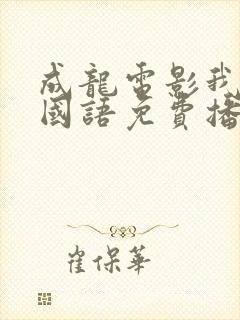 成龍電影我
國語免費播
崔保華